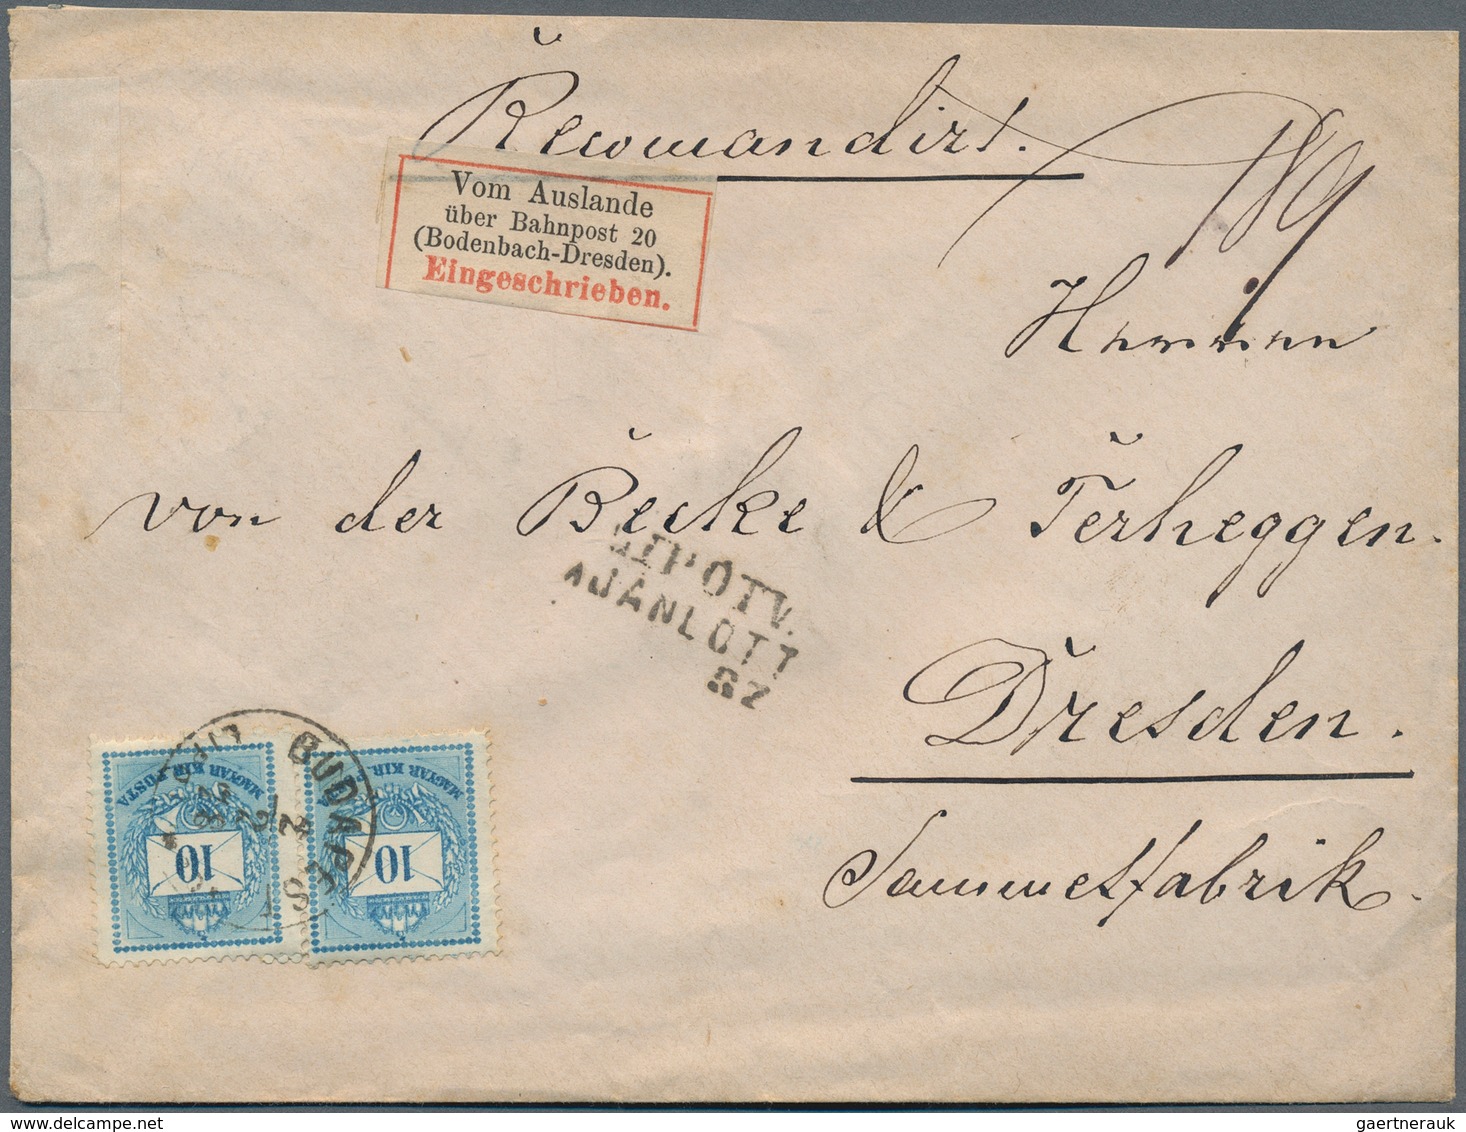 Recomandirt.
189
Vom Auslande
über Bahnpost 20
(Bodenbach-Dresden).
Eingeschrieben.
Herren
von der Becke & Terheggen.
LIPÓTV.
AJÁNLOTT
87
Dresden.
Sammetfabrik.
BUDAPEST
MAGYAR KIR. POSTA
10
MAGYAR KIR. P
10
gaertnerauk